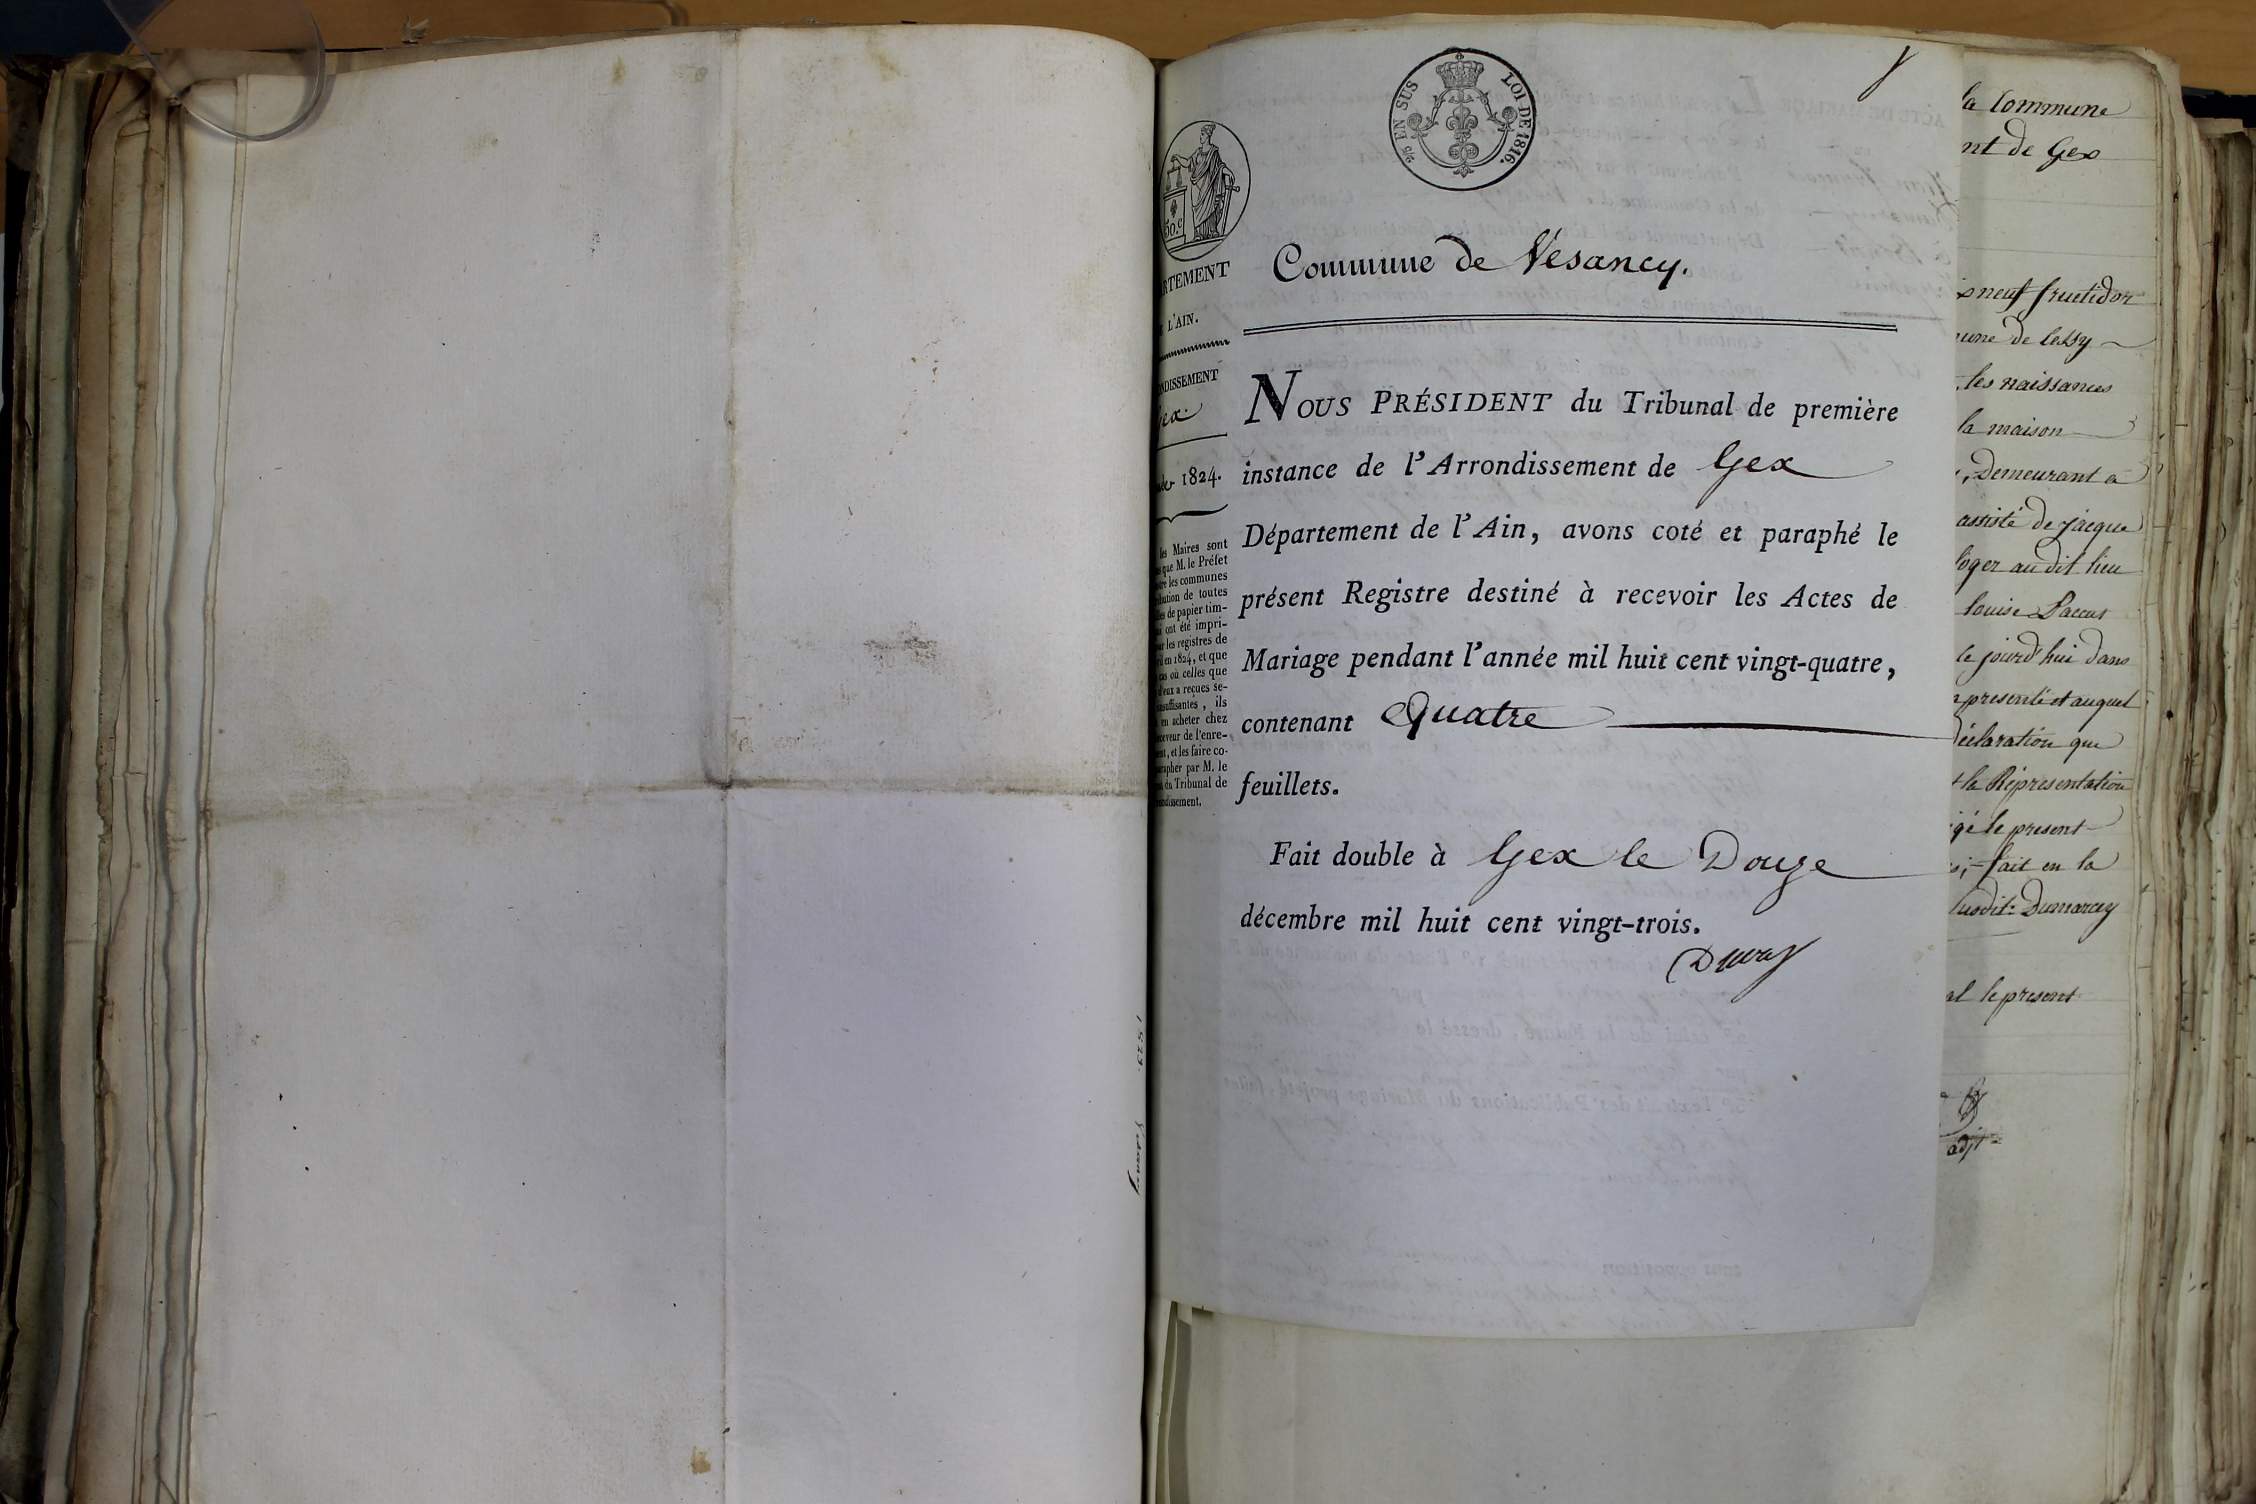 1823.
Vesancy
2/5 EN SUS
LOI DE 1816.
50.c
RTEMENT
L'AIN.
NDISSEMENT
Gex
1824.
les Maires sont
que M. le Préfet
re les communes
bution de toutes
les de papier tim-
i ont été impri-
ur les registres de
l en 1824, et que
cas où celles que
d'eux a reçues se-
nsuffisantes, ils
en acheter chez
eceveur de l'enre-
ent, et les faire co-
arapher par M. le
nt du Tribunal de
ondissement.
Commune de Vesancy.
NOUS PRÉSIDENT du Tribunal de première
instance de l'Arrondissement de Gex
Département de l'Ain, avons coté et paraphé le
présent Registre destiné à recevoir les Actes de
Mariage pendant l'année mil huit cent vingt-quatre,
contenant Quatre
feuillets.
Fait double à Gex le Douze
décembre mil huit cent vingt-trois.
la Commune
nt de Gex
neuf fructidor
une de lessy
les naissances
la maison
, Demeurant a
assisté de jacque
loger au dit lieu
louise
le jourd'hui dans
presenté et auquel
déclaration que
la Représentation
gé le present
fait en la
susdit Dumarcey
al le present
adjt